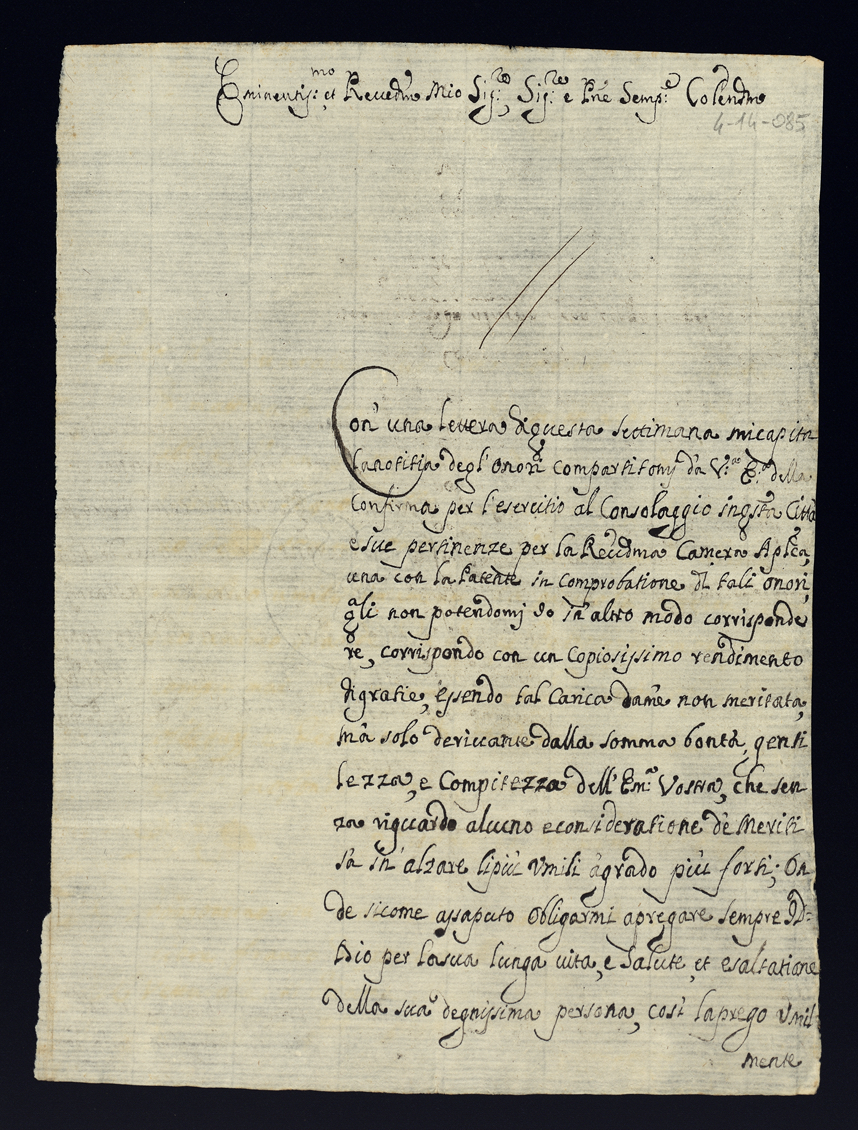 Eminentis:mo et Reuedmo Mio Sig:re, Sig:re e Pne Semp:e Colendmo
4-14-085
Con' una lettera di questa settimana mi capita
la notitia degl' onori compartitomj da V:a E:a della
Confirma per l'esercitio al Consolaggio in qsta Città
e sue pertinenze per la Reuedma Camera Aplca,
una con la Patente in comprobatione di tali onori,
qli non potendomj io in' altro modo corrisponde
re, corrispondo con un Copiosissimo rendimento
di gratie, essendo tal Carica da me non meritata,
mà solo deriuante dalla somma bontà, genti
lezza, e Compitezza dell' Em:a Vostra, che sen
za riguardo alcuno e consideratione dè Meriti
sà in' alzare li più Vmili à grado più forti; On
de sicome assaputo Obligarmi a pregare sempre Id=
Dio per la sua lunga uita, e Salute, et esaltatione
della sua degnissima persona, così la prego Vmil
mente